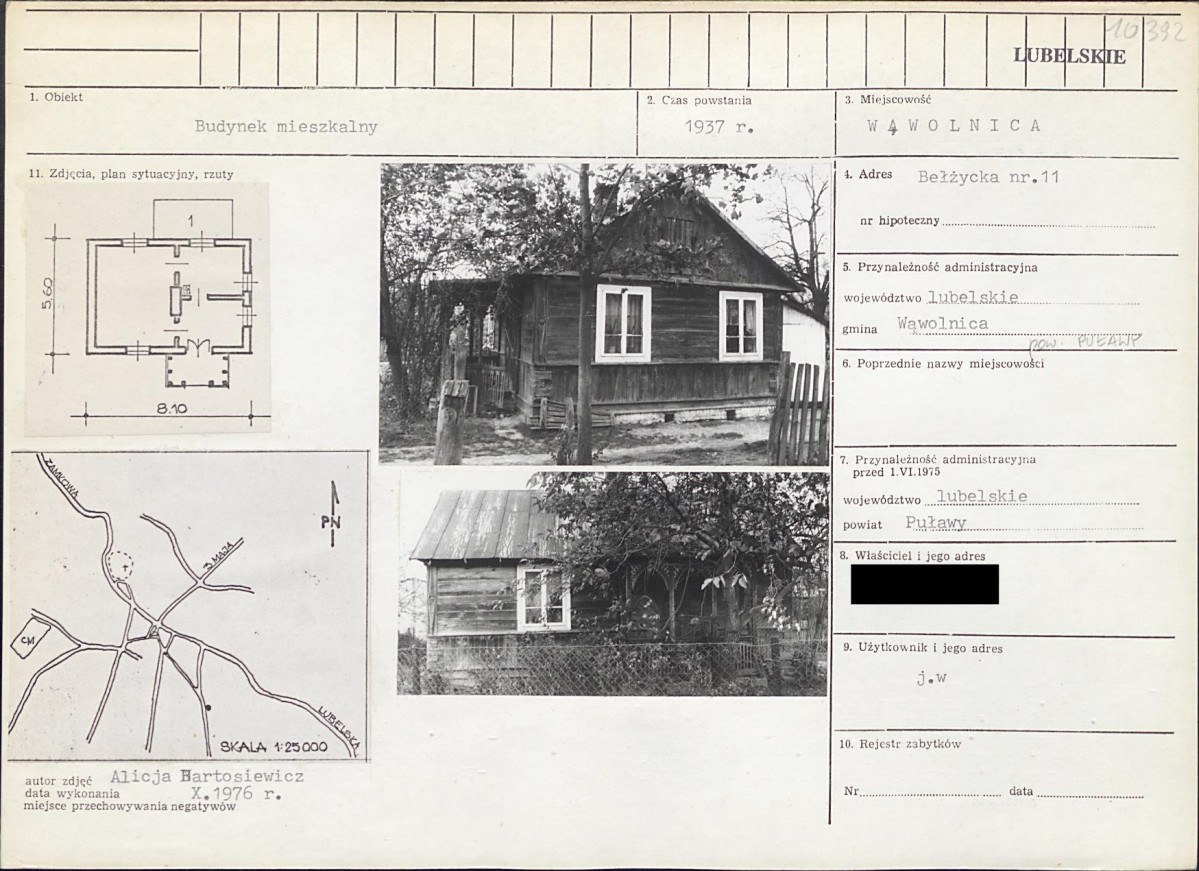 10392
LUBELSKIE
1. Obiekt
Budynek mieszkalny
2. Czas powstania
1937 r.
3. Miejscowość
WĄWOLNICA
11. Zdjęcia, plan sytuacyjny, rzuty
1
5.60
8.10
ZAMKOWA
PN
3 MAJA
CM
LUBELSKA
SKALA 1:25000
autor zdjęć Alicja Bartosiewicz
data wykonania X.1976 r.
miejsce przechowywania negatywów
4. Adres Bełżycka nr.11
nr hipoteczny
5. Przynależność administracyjna
województwo lubelskie
gmina Wąwolnica
pow. PUŁAWY
6. Poprzednie nazwy miejscowości
7. Przynależność administracyjna
przed 1.VI.1975
województwo lubelskie
powiat Puławy
8. Właściciel i jego adres
9. Użytkownik i jego adres
j.w
10. Rejestr zabytków
Nr data